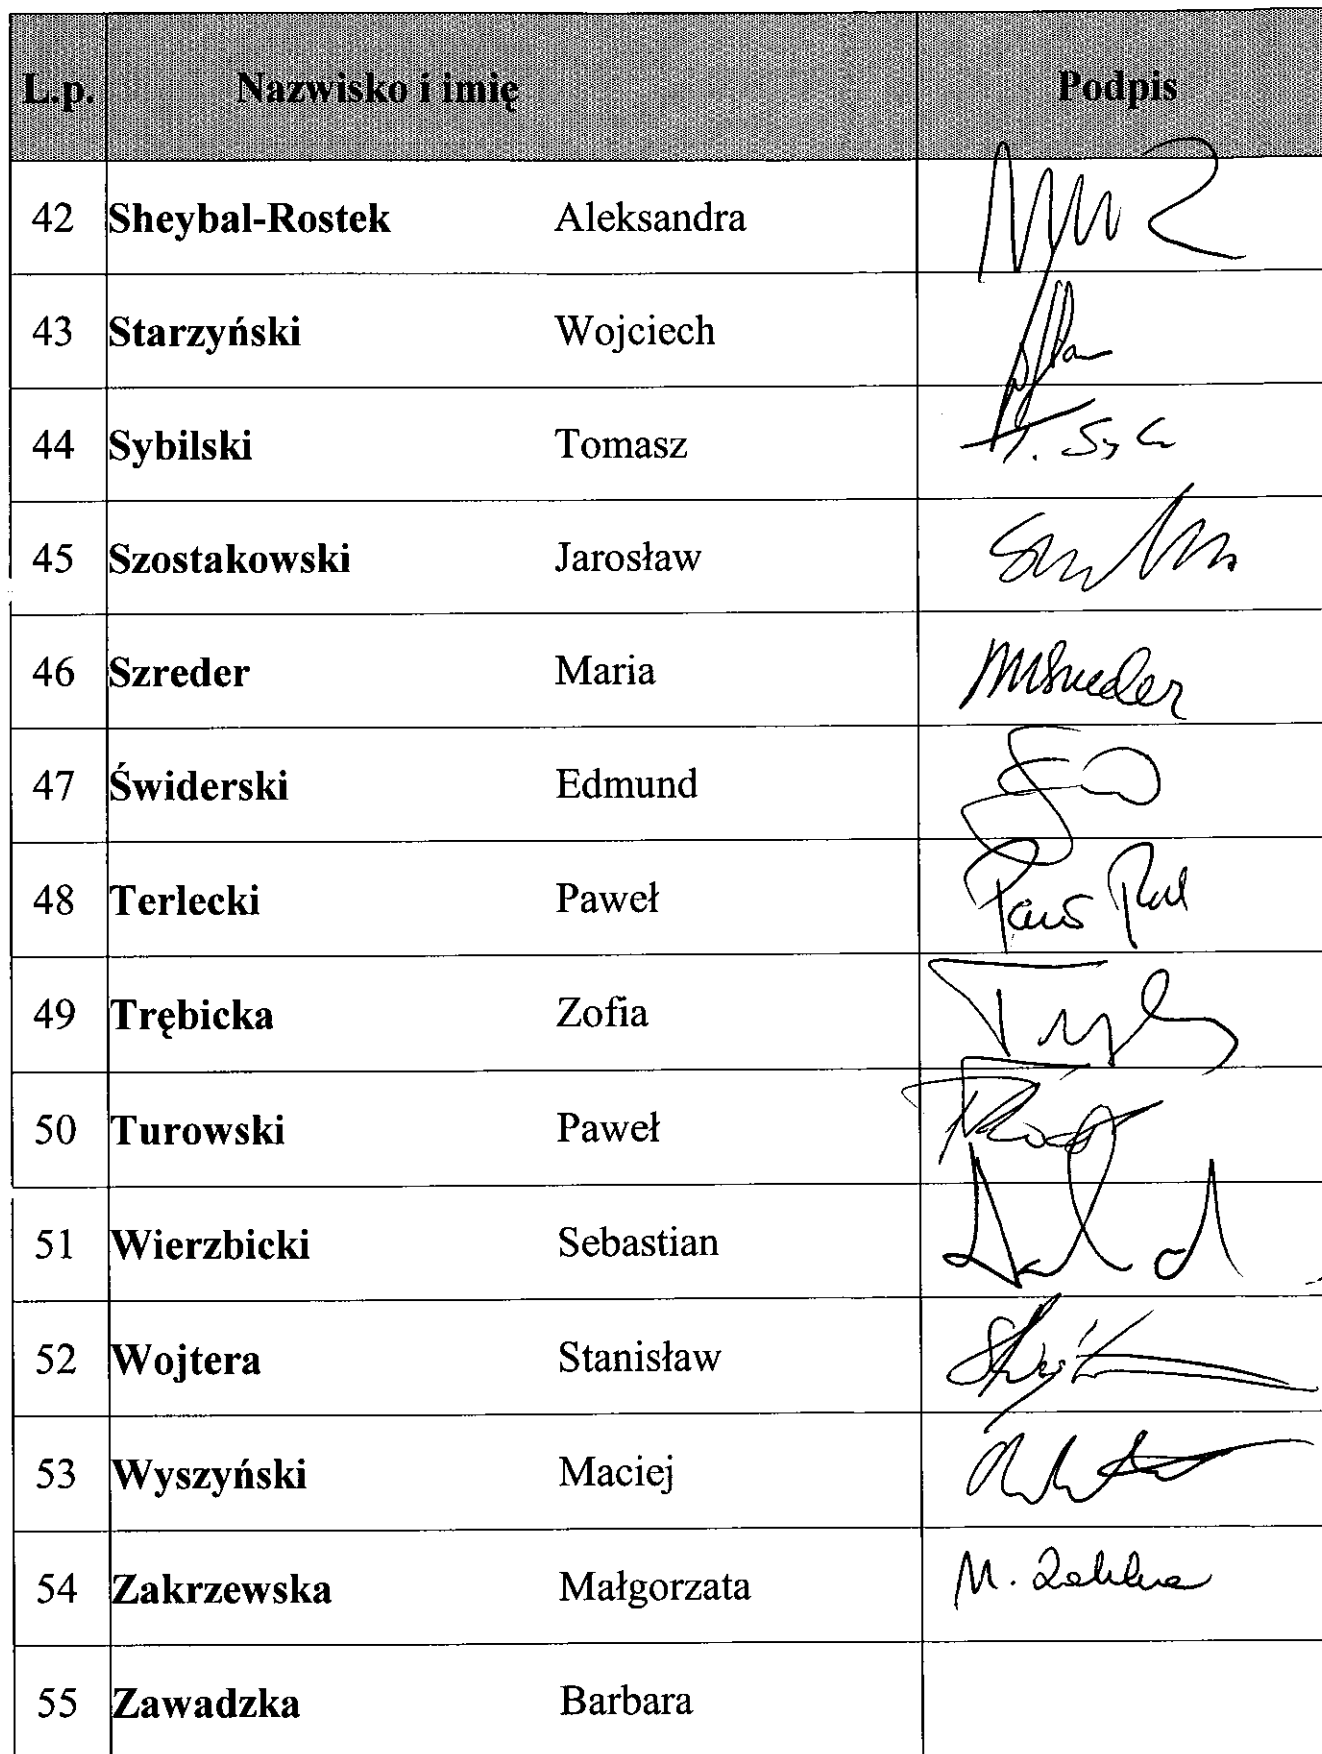 L.p. Nazwisko i imię Podpis
42 Sheybal-Rostek Aleksandra
43 Starzyński Wojciech
44 Sybilski Tomasz
45 Szostakowski Jarosław
46 Szreder Maria
47 Świderski Edmund
48 Terlecki Paweł
49 Trębicka Zofia
50 Turowski Paweł
51 Wierzbicki Sebastian
52 Wojtera Stanisław
53 Wyszyński Maciej
54 Zakrzewska Małgorzata M.
55 Zawadzka Barbara